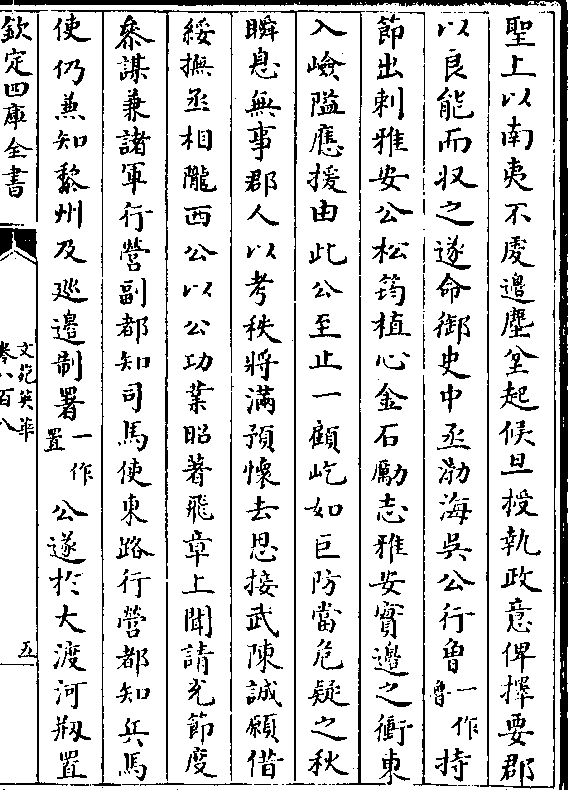 聖上以南夷不虔邊塵坌起候旦授執政意俾擇要郡
以良能而収之遂命御史中丞渤海吳公行魯一作魯持
節出刺雅安公松筠植心金石勵志雅安實邊之衝東
入嶮隘應援由此公至止一顧屹如巨防當危疑之秋
瞬息無事郡人以考秩將滿預懷去思接武陳誠願借
綏撫丞相隴西公以公功業昭著飛章上聞請充節度
叅謀兼諸軍行營副都知司馬使東路行營都知兵馬
使仍兼知黎州及廵邊制署一作置公遂於大渡河剏置
欽定四庫全書
文苑英華
卷八百八
五